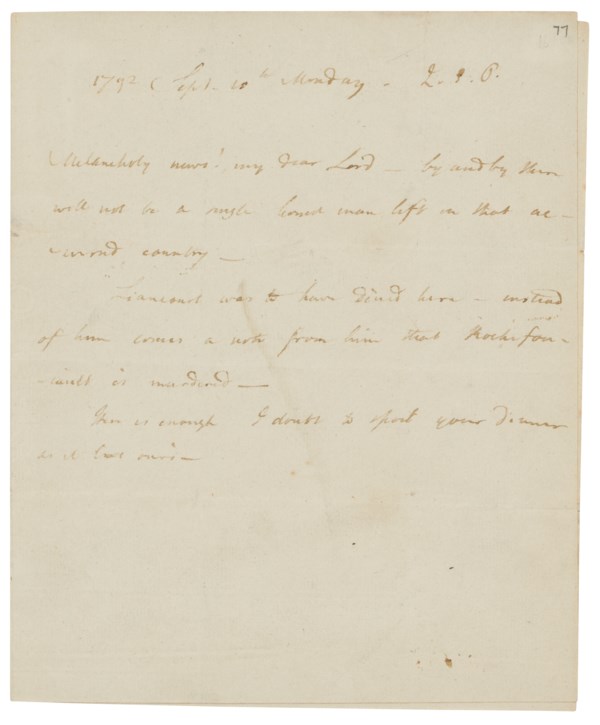 77
1792 Sept. 10th Monday - Q. S. P.
Melancholy news! my dear Lord - by and by there
will not be a single honest man left in that ac-
-cursed country -
Liancourt was to have dined here - instead
of him comes a note from him that Rochefou-
-cault is murdered -
This is enough I doubt to spoil your dinner
as it has ours -